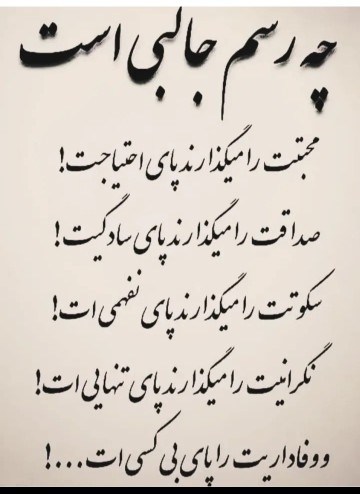 چه رسم جالبی است
محبتت را میگذارند پای احتیاجت!
صداقت را میگذارند پای سادگیت!
سکوتت را میگذارند پای نفهمی ات!
نگرانیت را میگذارند پای تنهایی ات!
و وفاداریت را پای بی کسی ات...!